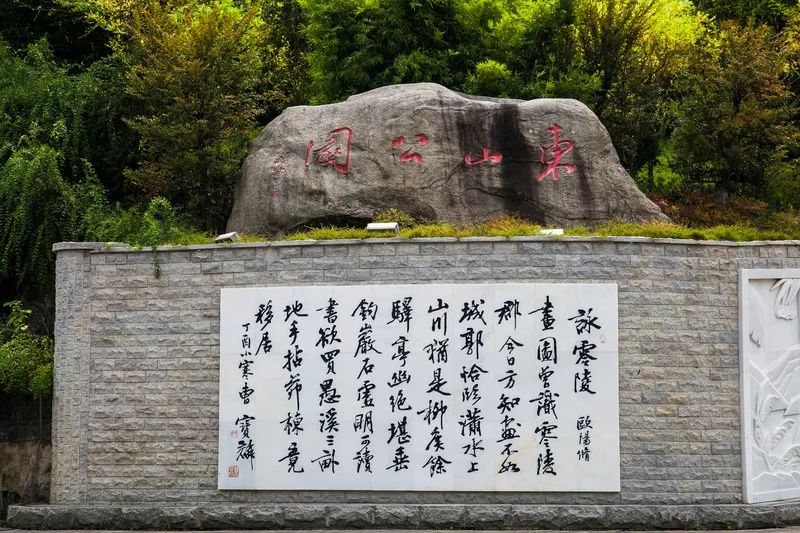 東山公園
詠零陵 歐陽脩
畫圖曾識零陵
郡今日方知畫不如
城郭恰臨瀟水上
山川猶是柳侯餘
驛亭幽絕堪垂
釣巖石虛明可讀
書欲買愚溪三畝
地手拈茅棟竟
移居
丁酉小寒曹寶麟